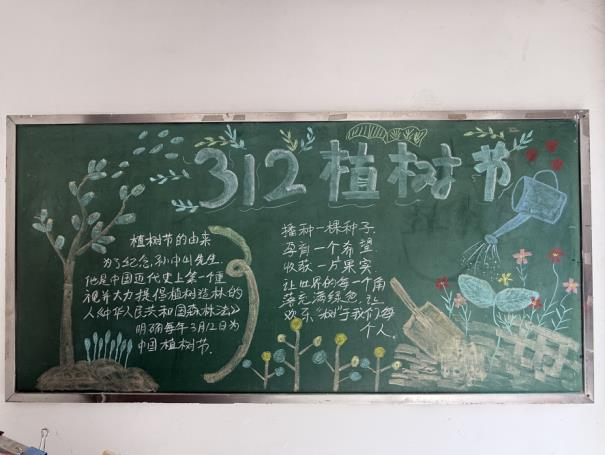 312 植树节
植树节的由来
为了纪念,孙中山先生.
他是中国近代史上第一个重
视并大力提倡植树造林的
人《中华人民共和国森林法》
明确每年3月12日为
中国植树节.
播种一棵种子
孕育一个希望
收获一片果实
让世界的每一个角
落充满绿色,让
欢乐"树"于我们每
个人.